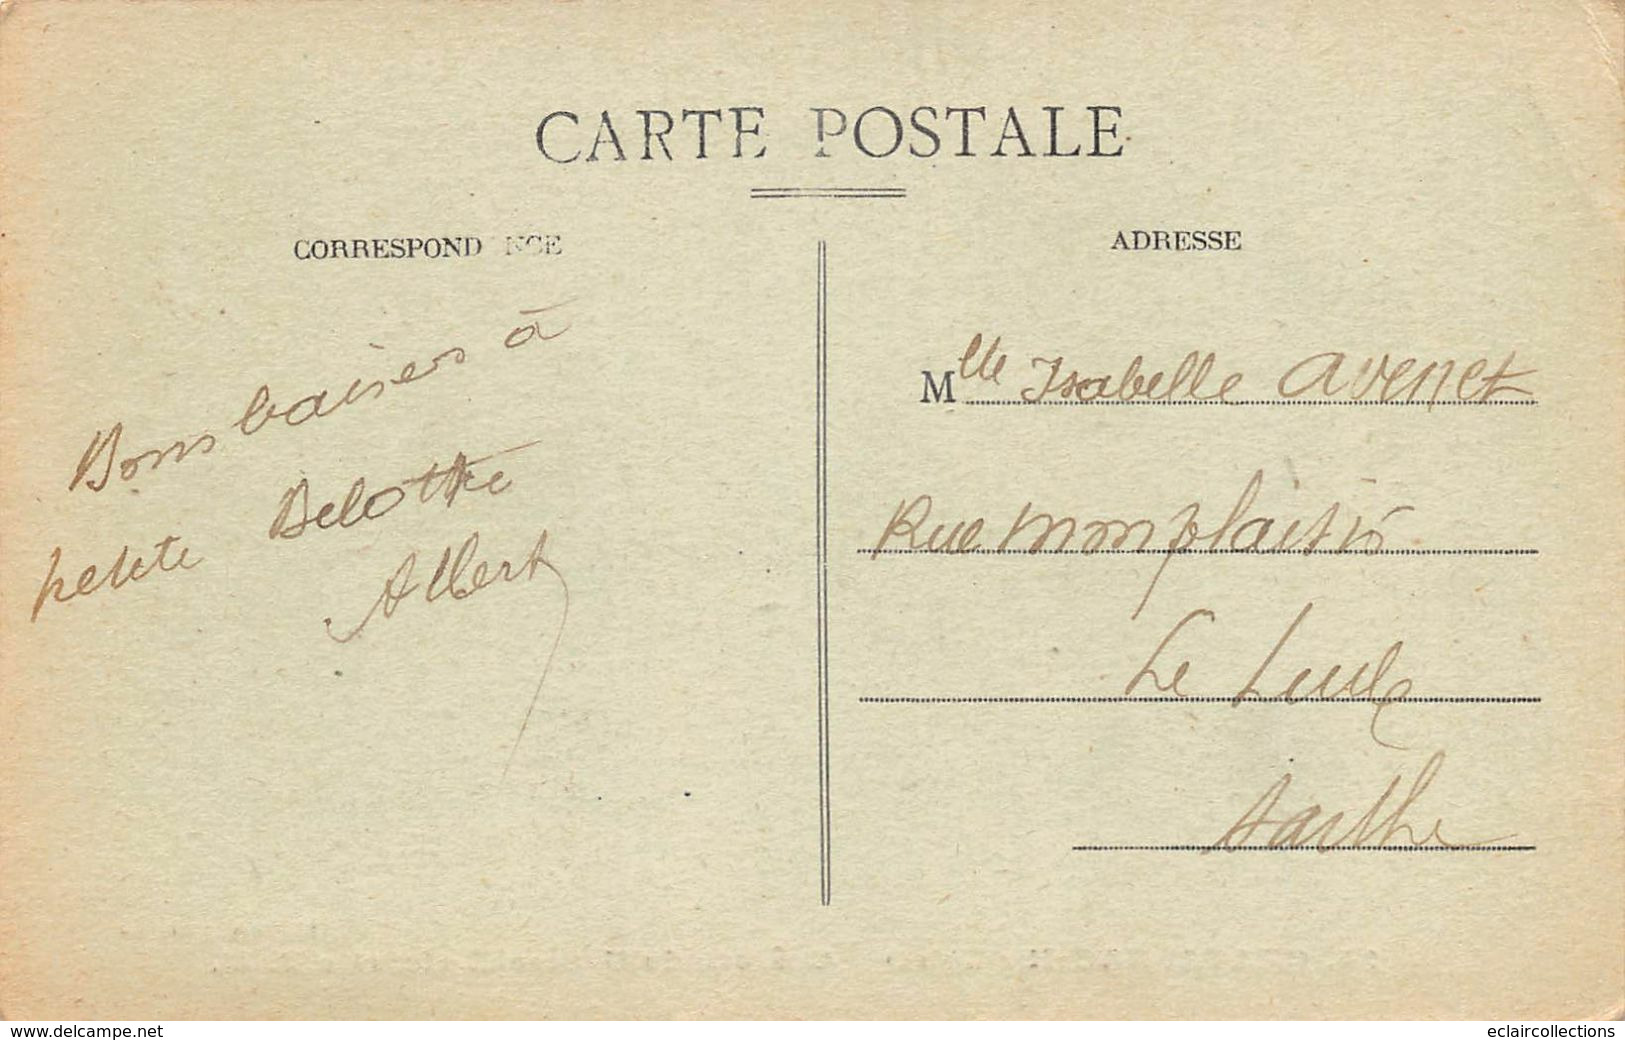 CARTE POSTALE
CORRESPOND NCE
ADRESSE
Bons baisers à
petite Belotte
Albert
Mlle Isabelle Avenet
Rue monplaisir
Le Lude
Sarthe
www.delcampe.net
eclaircollections